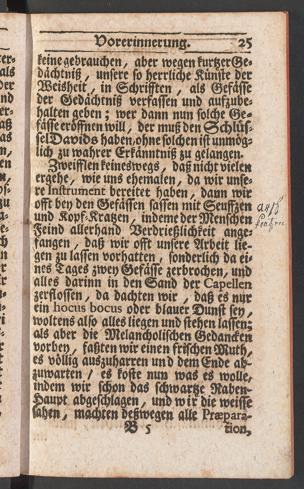 Vorerinnerung. 25
keine gebrauchen, aber wegen kurtzer Ge-
dächtniß, unsere so herrliche Künste der
Weisheit, in Schrifften, als Gefässe
der Gedächtniß verfassen und aufzube-
halten geben; wer dann nun solche Ge-
fässe eröffnen will, der muß den Schlüs-
sel Davids haben, ohne solchen ist unmög-
lich zu wahrer Erkänntniß zu gelangen.
Zweifflen keineswegs, daß nicht vielen
ergehe, wie uns ehemalen, da wir unse-
re Instrument bereitet haben, dann wir
offt bey den Gefässen sassen mit Seufftzen
und Kopf-Kratzen, indeme der Menschen
Feind allerhand Verdrießlichkeit ange-
fangen, daß wir offt unsere Arbeit lie-
gen zu lassen vorhatten, sonderlich da ei-
nes Tages zwey Gefässe zerbrochen, und
alles darinn in den Sand der Capellen
zerflossen, da dachten wir, daß es nur
ein hocus bocus oder blauer Dunst sey,
woltens also alles liegen und stehen lassen;
als aber die Melancholischen Gedancken
vorbey, faßten wir einen frischen Muth,
es völlig auszuharren und dem Ende ab-
zuwarten, es koste nun was es wolle,
indem wir schon das schwartze Raben-
Haupt abgeschlagen, und wir die weisse
sahen, machten deßwegen alle Præpara-
B 5 tion,